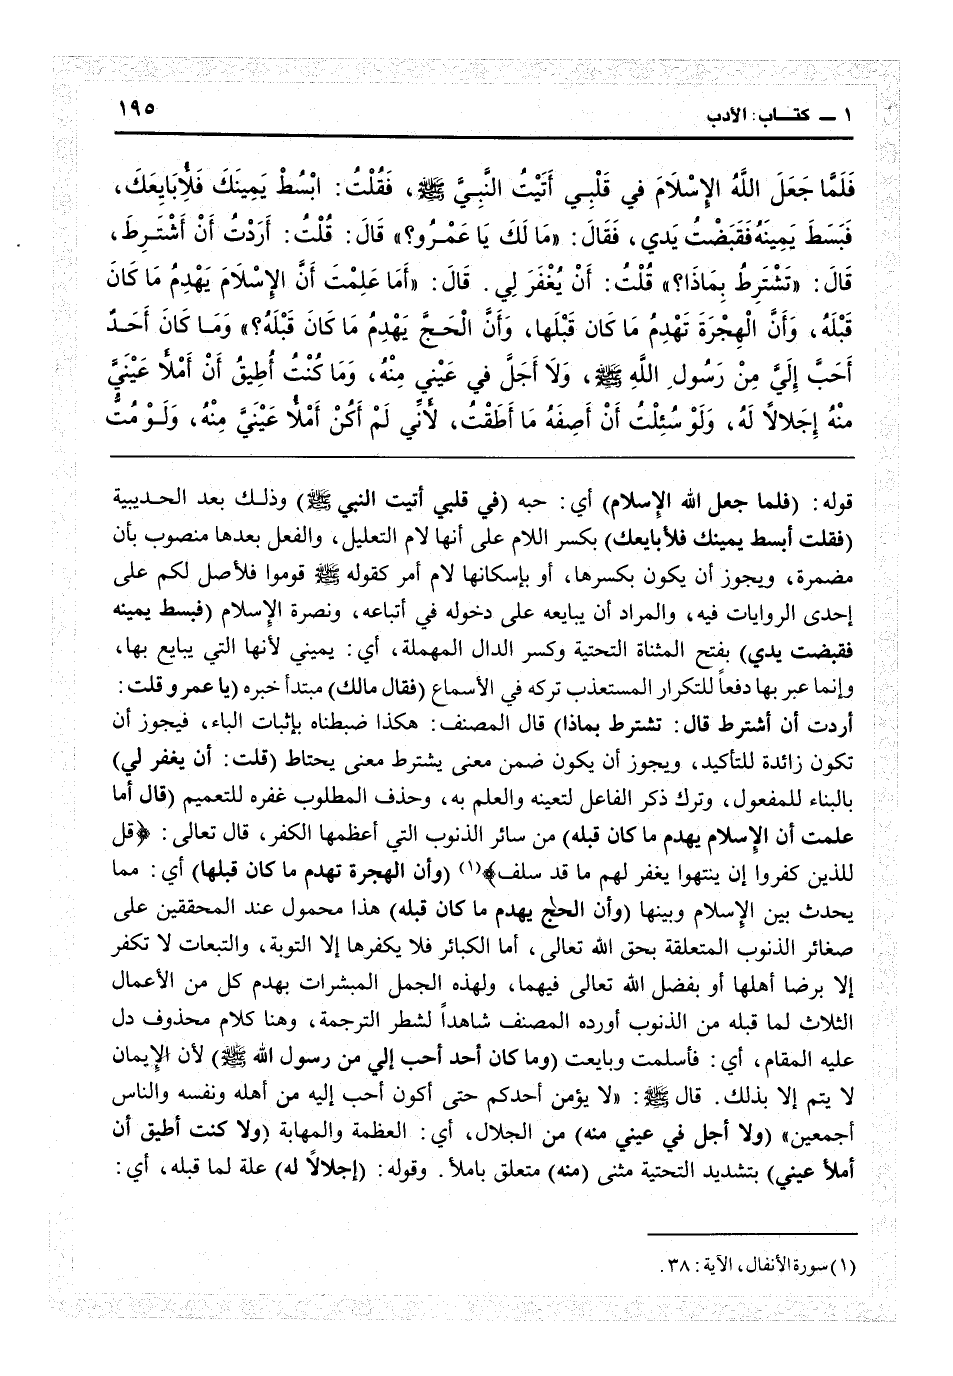 ١ ــ كتــاب: الأدب
١٩٥
فَلَمَّا جَعَلَ اللَّهُ الإِسْلَامَ في قَلْبِـي أَتَيْتُ النَّبِيَّ ﷺ، فَقُلْتُ: ابْسُطْ يَمِينَكَ فَلِأُبَايِعَكَ،
فَبَسَطَ يَمِينَهُ فَقَبَضْتُ يَدي، فَقَالَ: «مَا لَكَ يَا عَمْـرُو؟» قَالَ: قُلْتُ: أَرَدْتُ أَنْ أَشْتَـرِطَ،
قَالَ: «تَشْتَرِطُ بِمَاذَا؟» قُلْتُ: أَنْ يُغْفَرَ لِي. قَالَ: «أَمَا عَلِمْتَ أَنَّ الإِسْلَامَ يَهْدِمُ مَا كَانَ
قَبْلَهُ، وَأَنَّ الْهِجْرَةَ تَهْدِمُ مَا كَان قَبْلَها، وَأَنَّ الْحَـجَّ يَهْدِمُ مَا كَانَ قَبْلَهُ؟» وَمَـا كَانَ أَحَـدٌ
أَحَبَّ إِلَيَّ مِنْ رَسُولِ اللَّهِ ﷺ، وَلَا أَجَلَّ في عَيْنِي مِنْهُ، وَمَا كُنْتُ أُطِيقُ أَنْ أَمْلَأَ عَيْنَيَّ
مِنْهُ إِجَلالاً لَهُ، وَلَوْ سُئِلْتُ أَنْ أَصِفَهُ مَا أَطَقْتُ، لَأَنِّي لَمْ أَكُنْ أَمْلَأُ عَيْنَيَّ مِنْهُ، وَلَـوْ مُتُّ
قوله: (فلما جعل الله الإسلام) أي: حبه (في قلبي أتيت النبي ﷺ) وذلـك بعد الحـديبية
(فقلت أبسط يمينك فلأبايعك) بكسر اللام على أنها لام التعليل، والفعل بعدها منصوب بأن
مضمرة، ويجوز أن يكون بكسرها، أو بإسكانها لام أمر كقوله ﷺ قوموا فلأصل لكم على
إحدى الروايات فيه، والمراد أن يبايعه على دخوله في أتباعه، ونصرة الإسلام (فبسط يمينه
فقبضت يدي) بفتح المثناة التحتية وكسر الدال المهملة، أي: يميني لأنها التي يبايع بها،
وإنما عبر بها دفعاً للتكرار المستعذب تركه في الأسماع (فقال مالك) مبتدأ خبره (يا عمر و قلت:
أردت أن أشترط قال: تشترط بماذا) قال المصنف: هكذا ضبطناه بإثبات الباء، فيجوز أن
تكون زائدة للتأكيد، ويجوز أن يكون ضمن معنى يشترط معنى يحتاط (قلت: أن يغفر لي)
بالبناء للمفعول، وترك ذكر الفاعل لتعينه والعلم به، وحذف المطلوب غفره للتعميم (قال أما
علمت أن الإسلام يهدم ما كان قبله) من سائر الذنوب التي أعظمها الكفر، قال تعالى: ﴿قل
للذين كفروا إن ينتهوا يغفر لهم ما قد سلف﴾(١) (وأن الهجرة تهدم ما كان قبلها) أي: مما
يحدث بين الإسلام وبينها (وأن الحج يهدم ما كان قبله) هذا محمول عند المحققين على
صغائر الذنوب المتعلقة بحق الله تعالى، أما الكبائر فلا يكفرها إلا التوبة، والتبعات لا تكفر
إلا برضا أهلها أو بفضل الله تعالى فيهما، ولهذه الجمل المبشرات بهدم كل من الأعمال
الثلاث لما قبله من الذنوب أورده المصنف شاهداً لشطر الترجمة، وهنا كلام محذوف دل
عليه المقام، أي: فأسلمت وبايعت (وما كان أحد أحب إلي من رسول الله ﷺ) لأن الإيمان
لا يتم إلا بذلك. قال ﷺ: «لا يؤمن أحدكم حتى أكون أحب إليه من أهله ونفسه والناس
أجمعين» (ولا أجل في عيني منه) من الجلال، أي: العظمة والمهابة (ولا كنت أطيق أن
أملأ عيني) بتشديد التحتية مثنى (منه) متعلق باملأ. وقوله: (إجلالاً له) علة لما قبله، أي:
(١) سورة الأنفال، الآية: ٣٨.